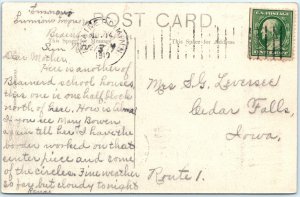 POST CARD.
This Space for Address.
Dear Mother,
Here is another of
Brainerd school houses
this one is one half block
north of here. How is Alma?
If you see Mary Bowen
again tell her I have the
border worked on that
center piece and some
of the circles. Fine weather
so far but cloudy tonight
Mrs S.G. Leversee
Cedar Falls,
Iowa.
Route 1.